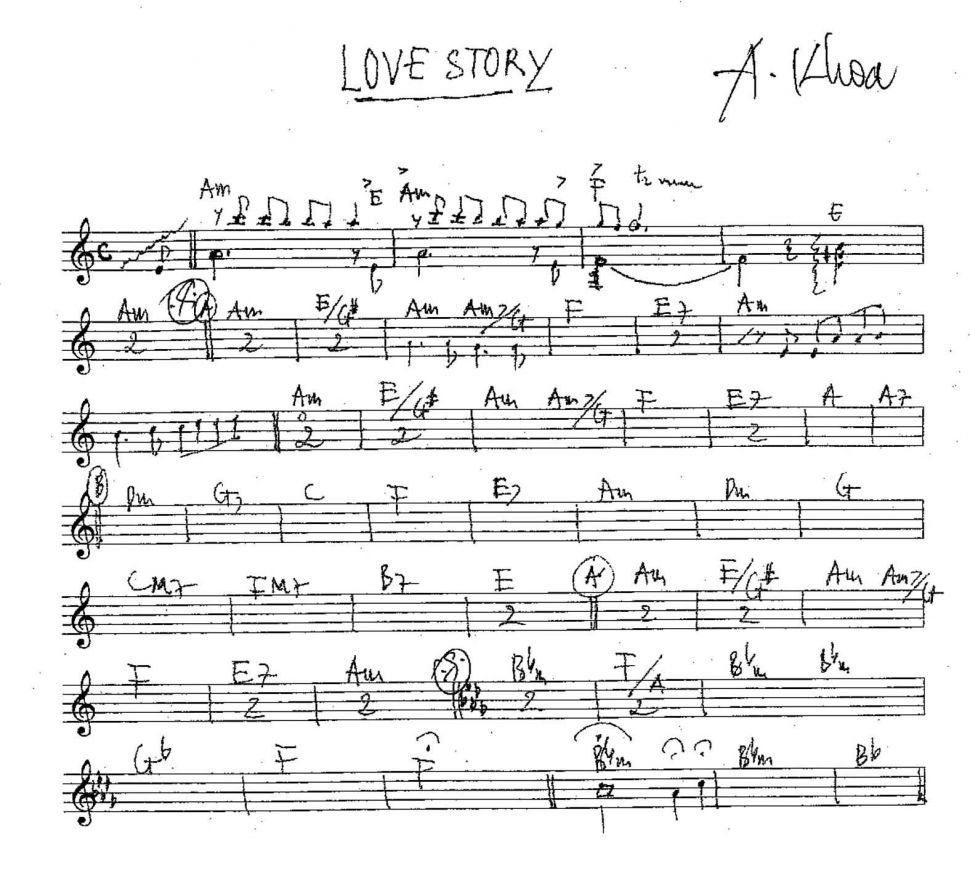 LOVE STORY
A. Khoa
Am E Am F E
Am A Am E/G# Am Am7/G F E7 Am
2 2 2 2
Am E/G# Am Am7/G F E7 A A7
2 2 2
B Dm G7 C F E7 Am Dm G
CM7 FM7 B7 E A' Am E/G# Am Am7/G
2 2 2
F E7 Am Bbm F/A Bbm Bbm
2 2 2 2
Gb F F Bbm Bbm Bb